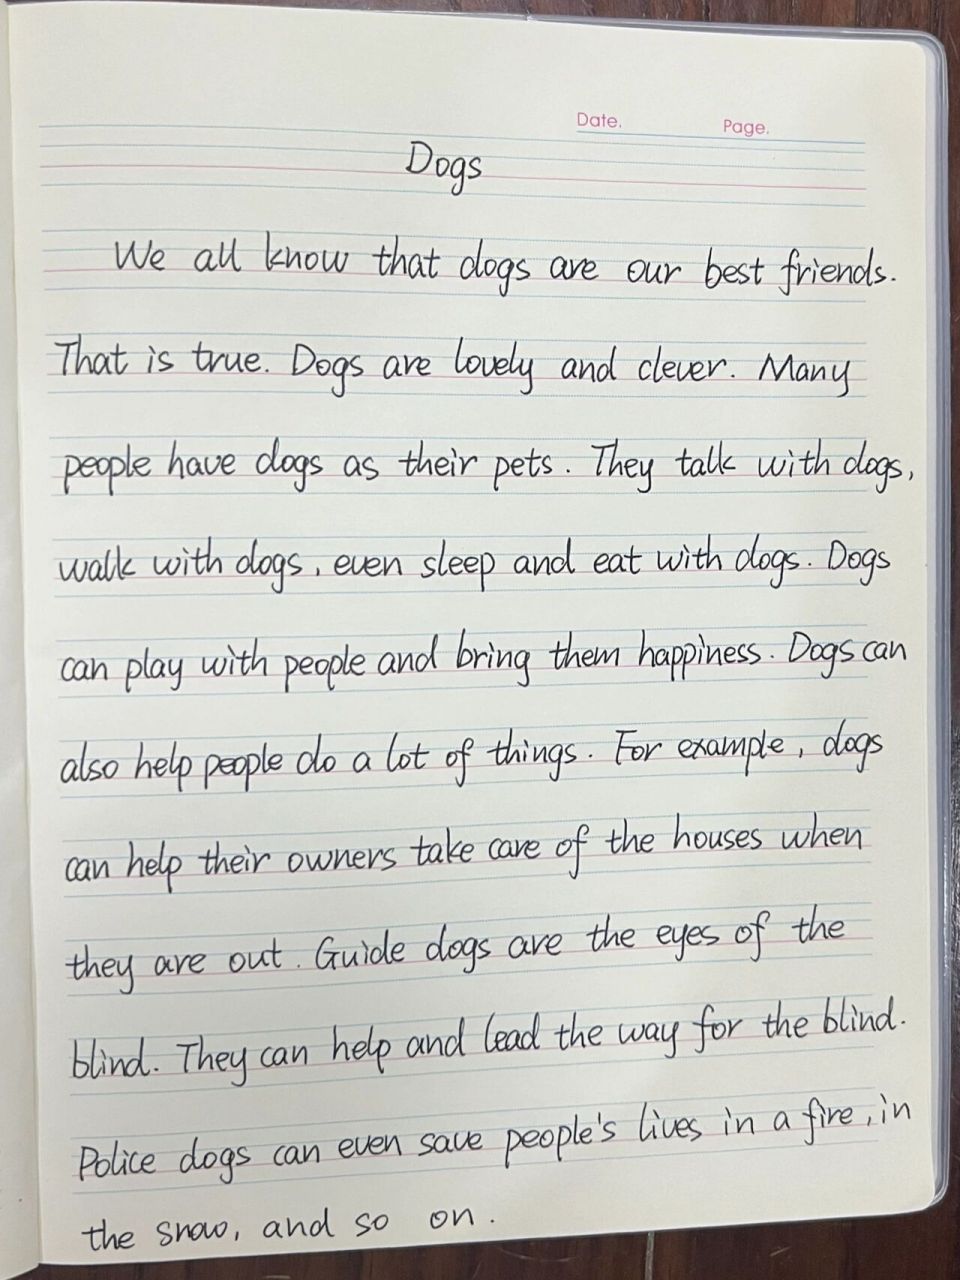 Date. Page.
Dogs
We all know that dogs are our best friends.
That is true. Dogs are lovely and clever. Many
people have dogs as their pets. They talk with dogs,
walk with dogs, even sleep and eat with dogs. Dogs
can play with people and bring them happiness. Dogs can
also help people do a lot of things. For example, dogs
can help their owners take care of the houses when
they are out. Guide dogs are the eyes of the
blind. They can help and lead the way for the blind.
Police dogs can even save people's lives in a fire, in
the snow, and so on.